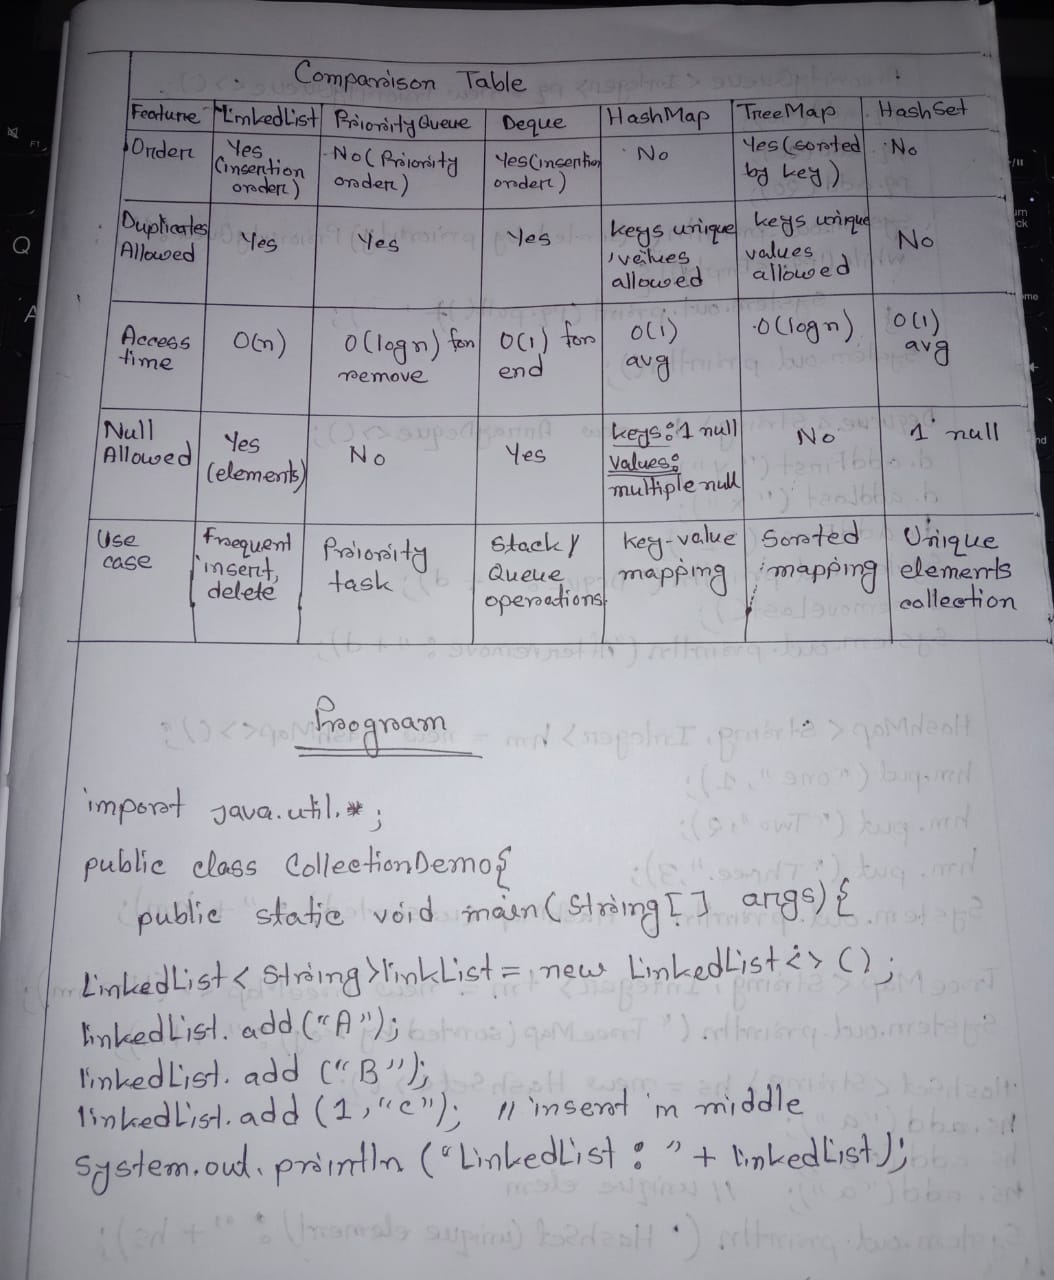 Comparison Table
Feature LinkedList PriorityQueue Deque HashMap TreeMap HashSet
Order Yes (insertion order) No (Priority order) Yes (insertion order) No Yes (sorted by key) No
Duplicates Allowed Yes Yes Yes keys unique, values allowed keys unique values allowed No
Access time O(n) O(logn) for remove O(1) for end O(1) avg O(logn) O(1) avg
Null Allowed Yes (elements) No Yes keys: 1 null values: multiple null No 1 null
Use case Frequent insert, delete Priority task Stack/ Queue operations key-value mapping Sorted mapping Unique elements collection
Program
import java.util.*;
public class CollectionDemo{
public static void main(String[] args){
LinkedList<String>linkList = new LinkedList<>();
linkedList.add("A");
linkedList.add("B");
linkedList.add(1,"c"); // insert in middle
System.out.println("LinkedList: " + linkedList);